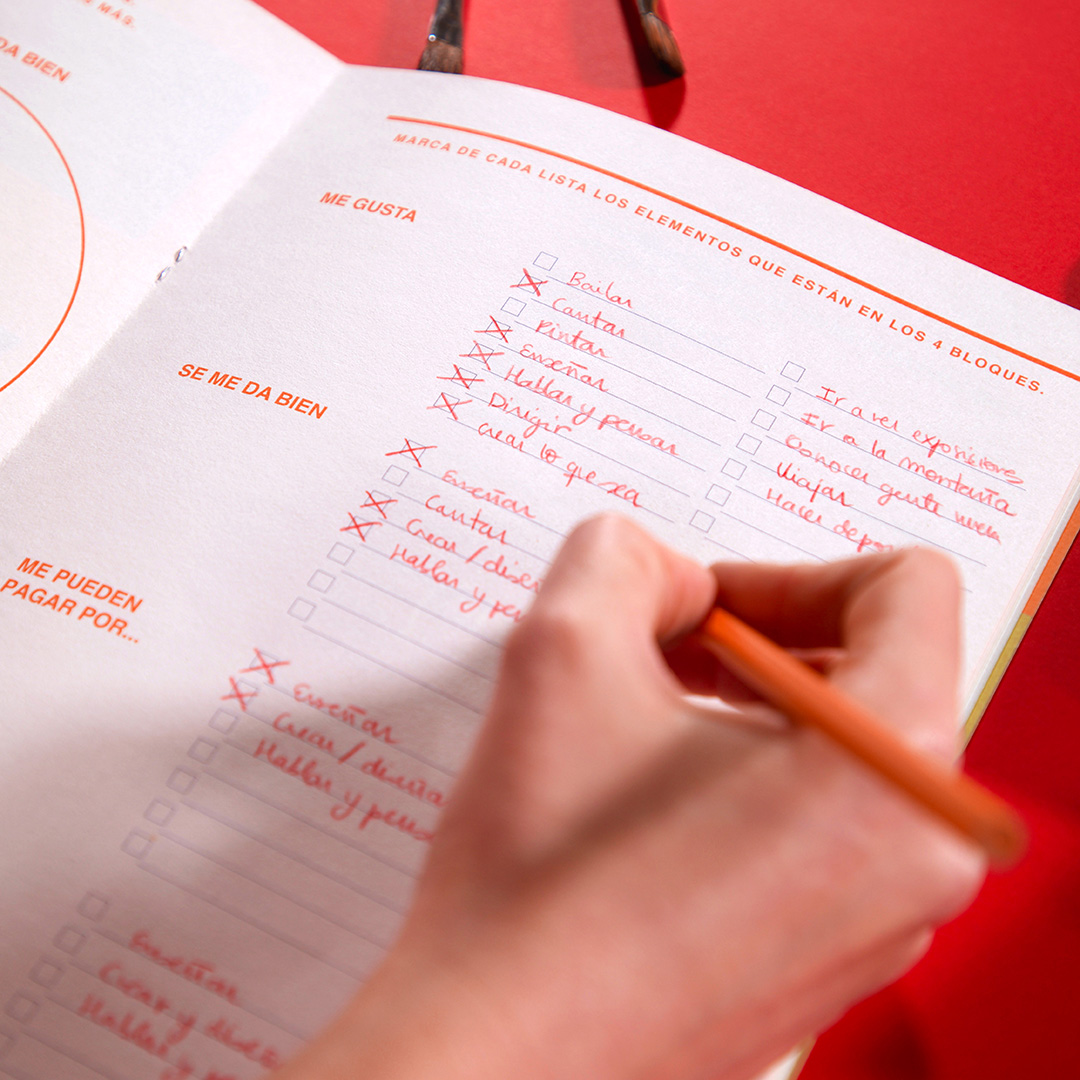 S MÁS.
DA BIEN
MARCA DE CADA LISTA LOS ELEMENTOS QUE ESTÁN EN LOS 4 BLOQUES.
ME GUSTA
Bailar
Cantar
Pintar
Enseñar
Hablar y pensar
Dirigir
Crear lo que sea
Ir a ver exposiciones
Ir a la montaña
Conocer gente nueva
Viajar
Hacer depo
SE ME DA BIEN
Enseñar
Cantar
Crear/diseñ
Hablar y pen
ME PUEDEN
PAGAR POR...
Enseñar
Crear/diseña
Hablar y pens
Enseñar
Crear y diseñ
Hablar y